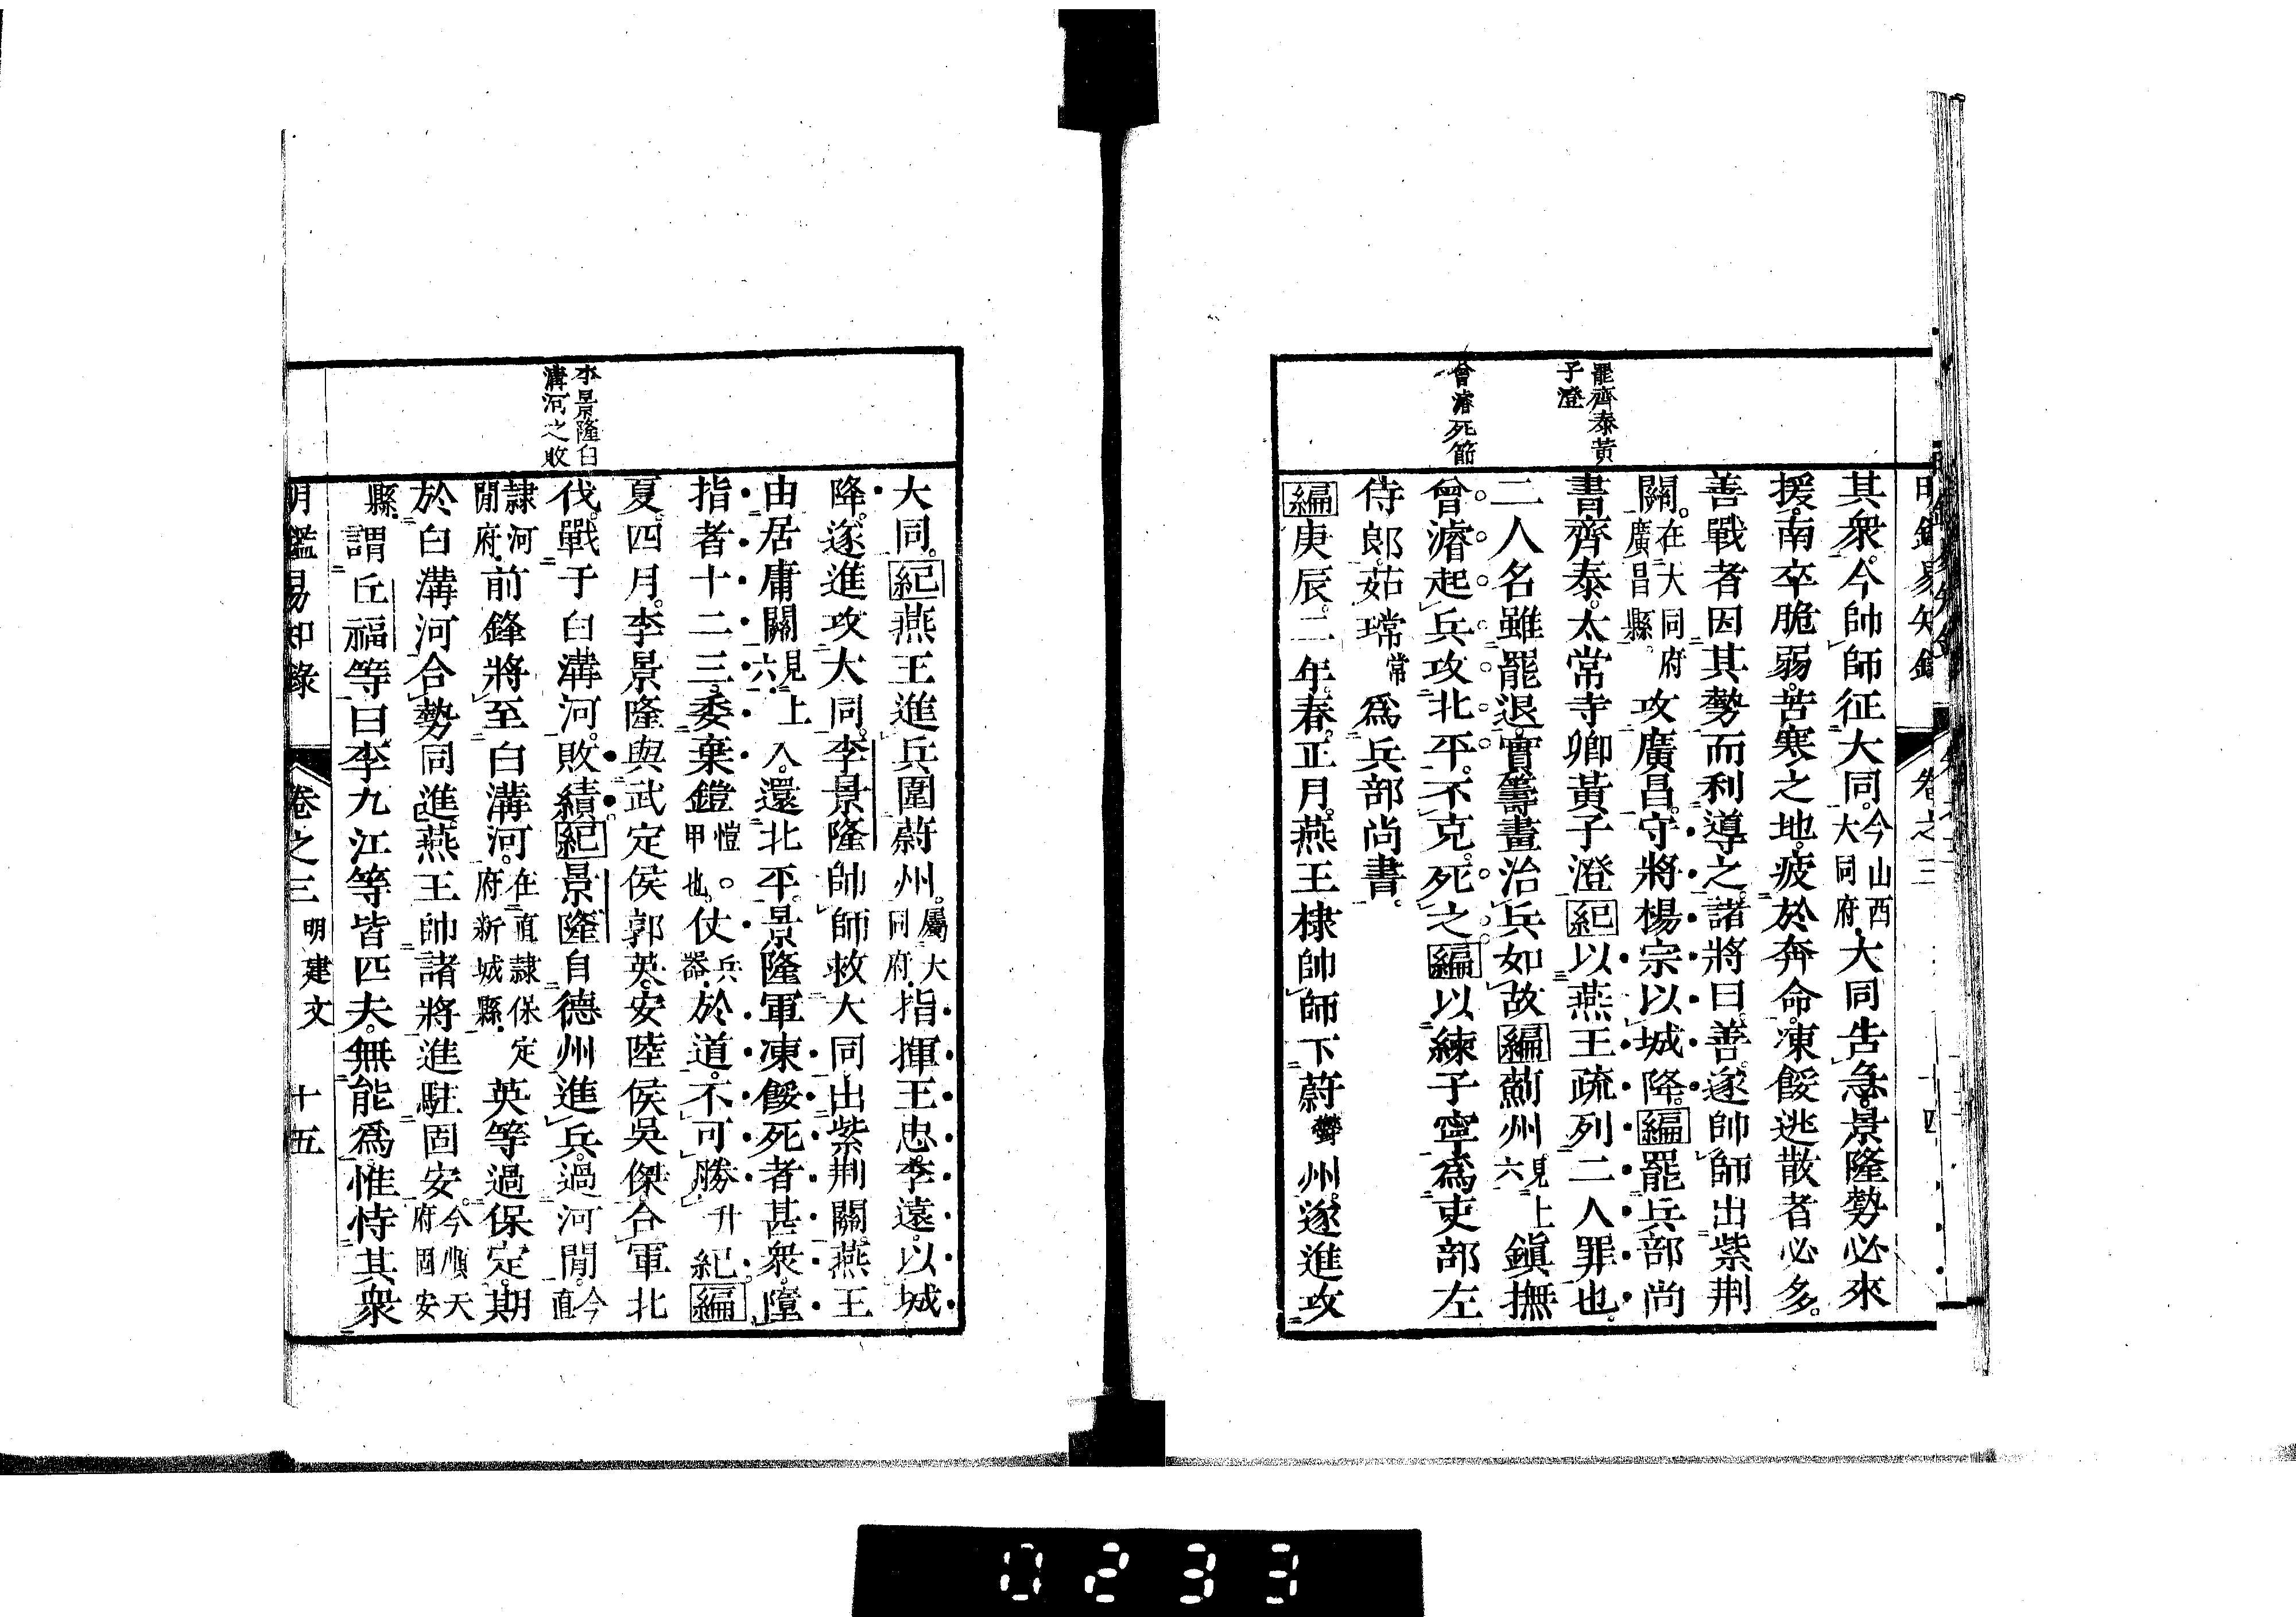 明鑑易知錄 卷之三 十四
罷齊泰黃
子澄
曾濬死節
其衆。今帥師征大同。今山西大同府。大同告急。景隆勢必來
援。南卒脆弱。苦寒之地。疲於奔命。凍餒逃散者必多。
善戰者因其勢而利導之。諸將曰。善。遂帥師出紫荆
關。在大同府廣昌縣。攻廣昌。守將楊宗以城降。編罷兵部尚
書齊泰。太常寺卿黃子澄紀以燕王疏列二人罪也。
二人名雖罷退。實籌畫治兵如故編薊州見上六鎮撫
曾濬起兵攻北平。不克。死之。編以練子寧爲吏部左
侍郎。茹瑺常爲兵部尚書。
編庚辰。二年。春。正月。燕王棣帥師下蔚鬱州。遂進攻
李景隆白
溝河之敗
大同。紀燕王進兵圍蔚州。屬大同府。指揮王忠。李遠。以城
降。遂進攻大同。李景隆帥師救大同。出紫荆關。燕王
由居庸關見上六。入。還北平。景隆軍凍餒死者甚衆。墮
指者十二三。委棄鎧愷。甲也。仗兵器。於道。不可勝升紀。編
夏。四月。李景隆與武定侯郭英。安陸侯吳傑合軍北
伐。戰于白溝河。敗績。紀景隆自德州進兵。過河閒。今直
隷河閒府。前鋒將至白溝河。在直隷保定府新城縣。英等過保定。期
於白溝河合勢同進。燕王帥諸將進駐固安。今順天府固安
縣。謂丘福等曰李九江等皆匹夫。無能爲。惟恃其衆
明鑑易知錄 卷之三 明建文 十五
0233